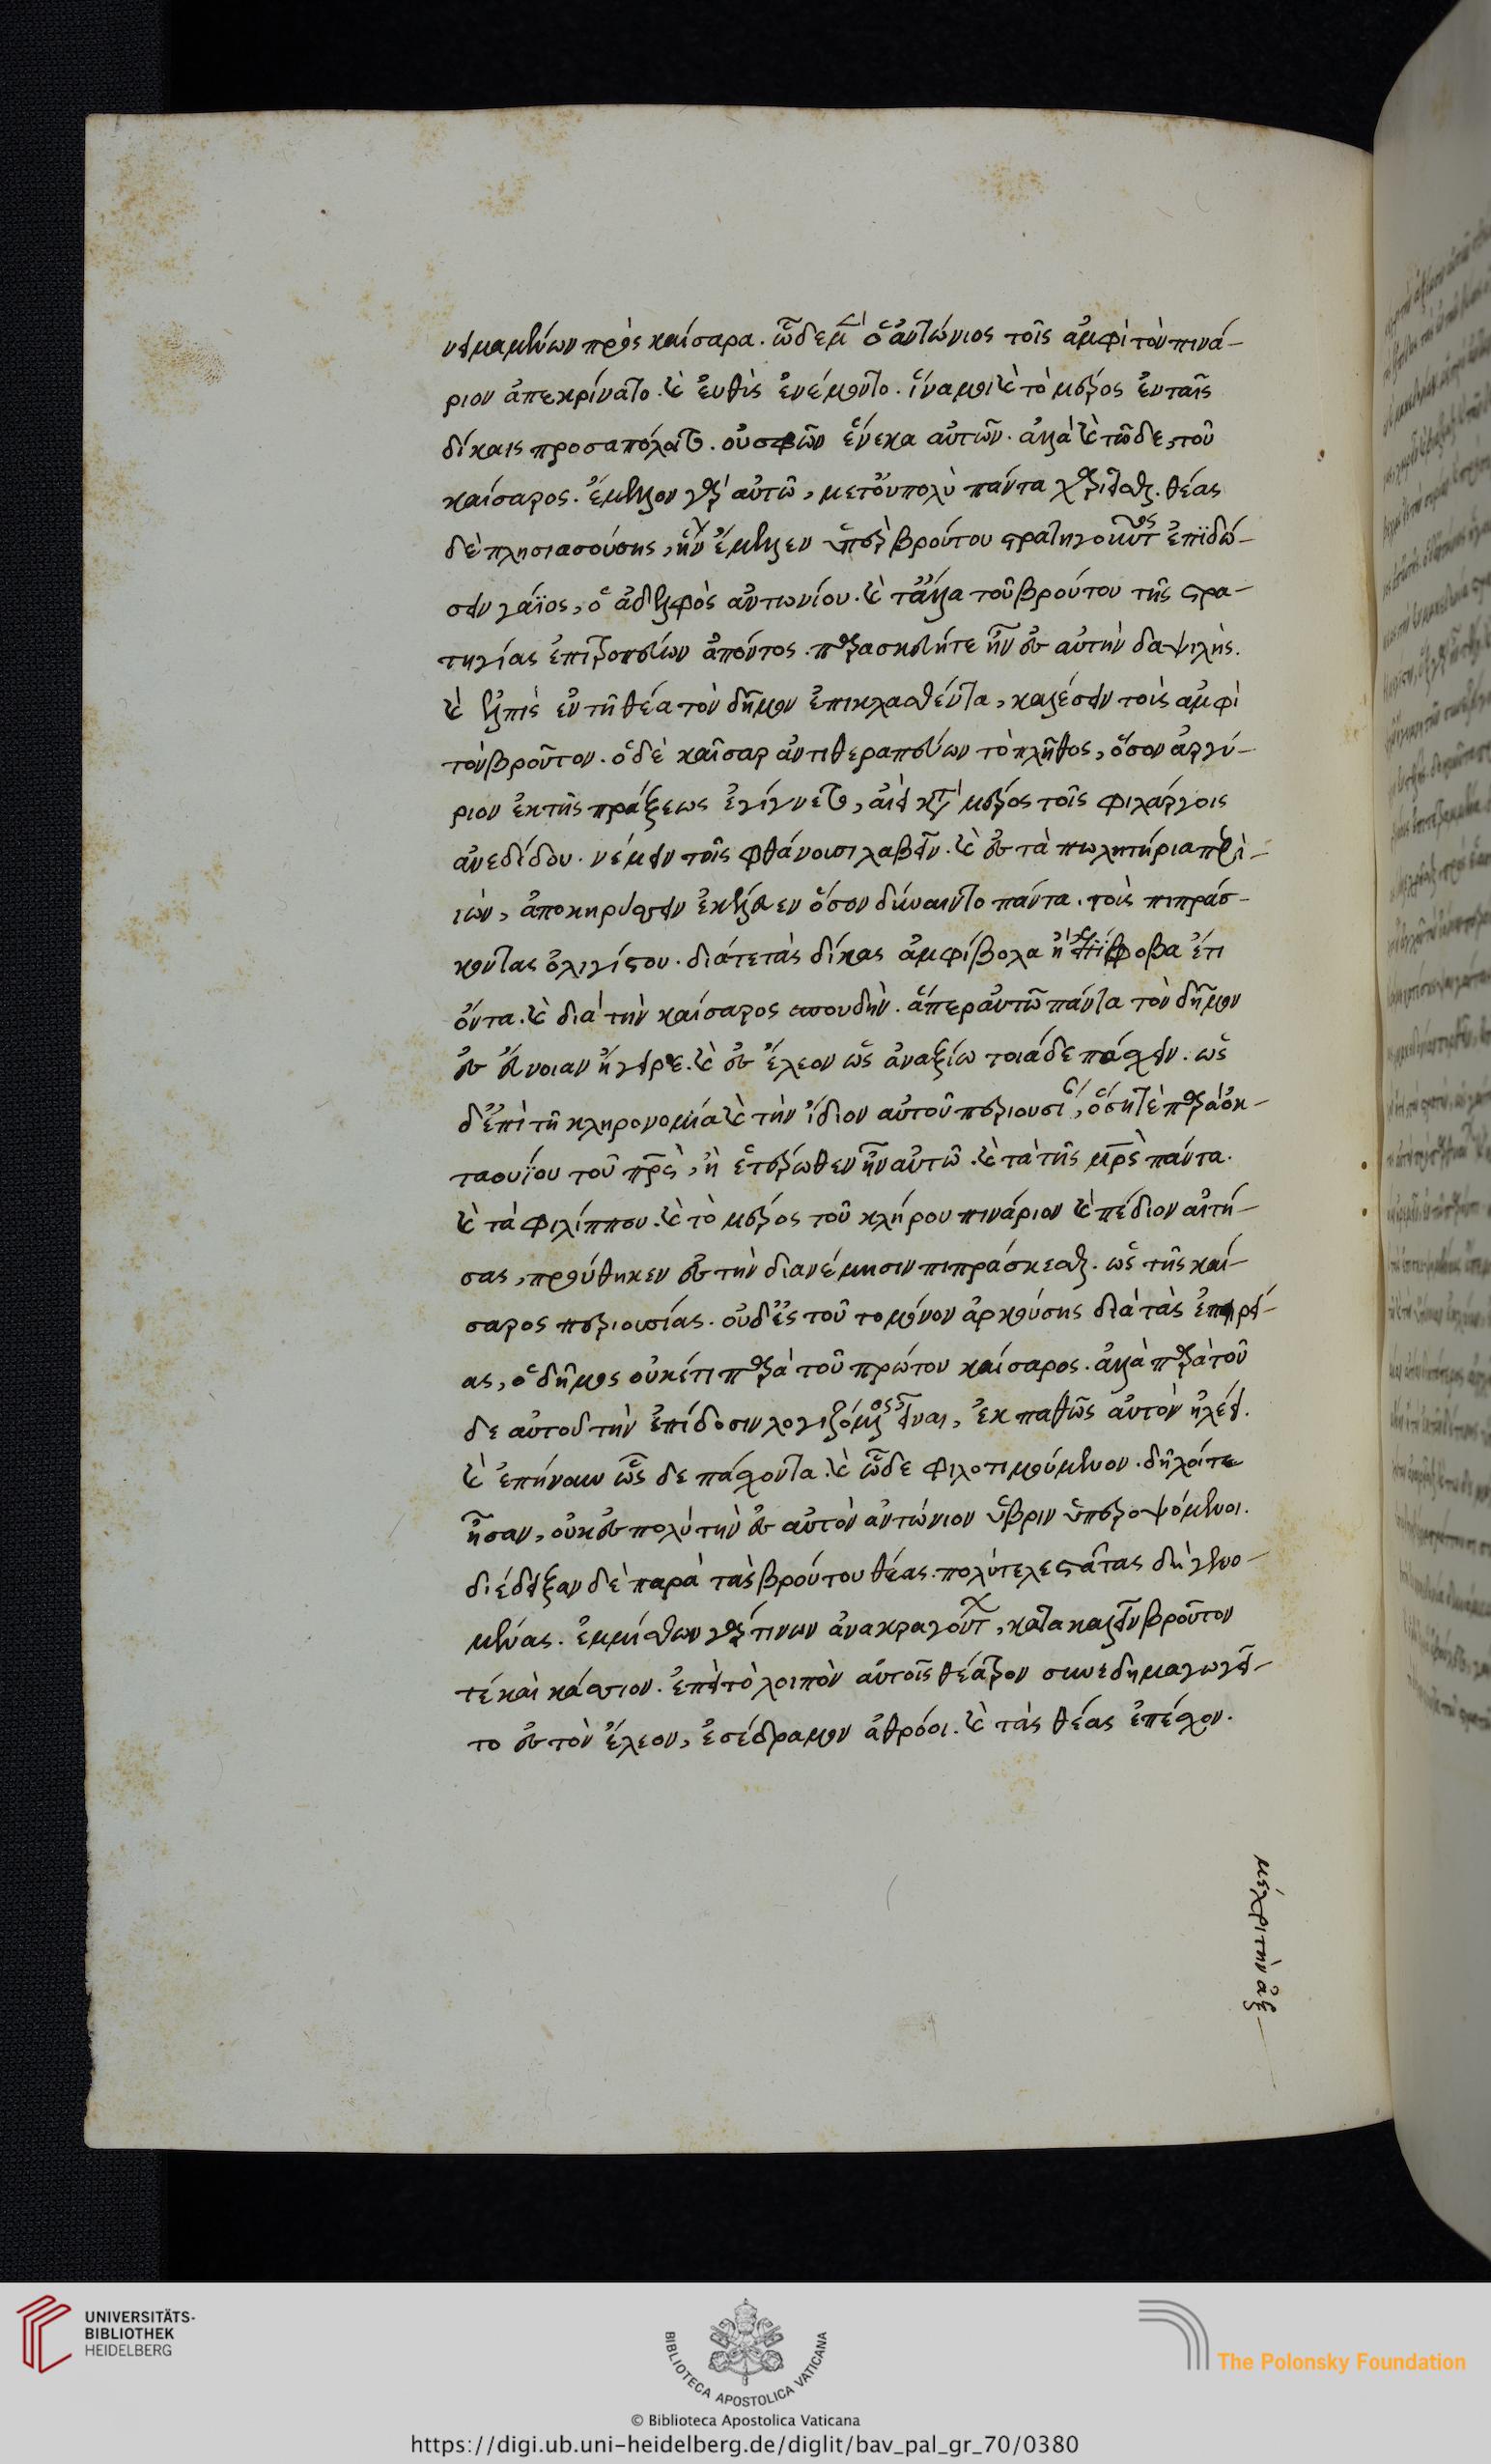 νειμαμένων πρὸς καίσαρα. ὧδε μὲν ὁ ἀντώνιος τοῖς ἀμφὶ τὸν πινά-
ριον ἀπεκρίνατο. καὶ εὐθὺς ἐνέμοντο. ἵνα μοι καὶ τὸ μέρος ἐν ταῖς
δίκαις προσαπόληται. οὐ σφῶν ἕνεκα αὐτῶν. ἀλλὰ καὶ τῶδε, τοῦ
καίσαρος. ἔμελλον γὰρ αὐτῶ, μετ' οὐ πολὺ πάντα χαριεῖσθαι. θέας
δὲ πλησιασούσης, ἣν ἔμελλεν ὑπὲρ βρούτου στρατηγοῦντος ἐπιδώ-
σειν γάϊος, ὁ ἀδελφὸς ἀντωνίου. καὶ τἄλλα τοῦ βρούτου τῆς στρα-
τηγίας ἐπιτροπεύων ἀπόντος. παρασκευήτε ἦν ἐς αὐτὴν δαψιλής.
καὶ ἐλπὶς ἐν τῆ θέα τὸν δῆμον ἐπικλασθέντα, καλέσειν τοὺς ἀμφὶ
τὸν βροῦτον. ὁ δὲ καῖσαρ ἀντιθεραπεύων τὸ πλῆθος, ὅσον ἀργύ-
ριον ἐκ τῆς πράξεως ἐγίγνετο, αἰεὶ κατὰ μέρος τοῖς φιλάρχοις
ἀνεδίδου. νέμειν τοῖς φθάνουσι λαβεῖν. καὶ ἐς τὰ πωλητήρια περι-
ιὼν, ἀποκηρύσσειν ἐκέλευεν ὅσου δύναιντο πάντα. τοὺς πιπράσ-
κοντας ὀλιγίστου. διά τε τὰς δίκας ἀμφίβολα ἢ ἐπίφοβα ἔτι
ὄντα. καὶ διὰ τὴν καίσαρος σπουδήν. ἅπερ αὐτῶ πάντα τὸν δῆμον
ἐς εὔνοιαν ἤγειρε. καὶ ἐς ἔλεον ὡς ἀναξίω τοιάδε πάσχειν. ὡς
δ' ἐπὶ τῆ κληρονομία καὶ τὴν ἴδιον αὐτοῦ περιουσίαν, ὅση τὲ παρὰ ὀκ-
ταουΐου τοῦ πατρὸς, ἢ ἑτέρωθεν ἦν αὐτῶ. καὶ τὰ τῆς μητρὸς πάντα.
καὶ τὰ φιλίππου. καὶ τὸ μέρος τοῦ κλήρου πινάριον καὶ πέδιον αἰτή-
σας, προύθηκεν ἐς τὴν διανέμησιν πιπράσκεσθαι. ὡς τῆς καί-
σαρος περιουσίας. οὐδ' ἐς τοῦτο μόνον ἀρκούσης διὰ τὰς ἐπηρεί-
ας, ὁ δῆμος οὐκέτι παρὰ τοῦ πρώτου καίσαρος. ἀλλὰ παρὰ τοῦ
δε αὐτοῦ τὴν ἐπίδοσιν λογιζόμενος εἶναι, ἐκπαθῶς αὐτὸν ἠλέει.
καὶ ἐπήνουν ὧς δε πάσχοντα. καὶ ὧδε φιλοτιμούμενον. δῆλοί τε
ἦσαν, οὐκ ἐς πολὺ τὴν ἐς αὐτὸν ἀντώνιον ὕβριν ὑπεροψόμενοι.
διέδειξαν δὲ παρὰ τὰς βρούτου θέας. πολυτελεστάτας δὴ γενο-
μένας. ἐμμίσθων γάρ τινων ἀνακραγόντων, κατακαλεῖν βροῦτον
τέ καὶ κάσσιον. ἐπεὶ τὸ λοιπὸν αὐτοῖς θέατρον συνεδημαγωγεῖ-
το ἐς τὸν ἔλεον, ἐσέδραμον ἀθρόοι. καὶ τὰς θέας ἐπέσχον.
μέχρι τὴν ἀξ-
UNIVERSITÄTS-
BIBLIOTHEK
HEIDELBERG
BIBLIOTECA APOSTOLICA VATICANA
The Polonsky Foundation
© Biblioteca Apostolica Vaticana
https://digi.ub.uni-heidelberg.de/diglit/bav_pal_gr_70/0380